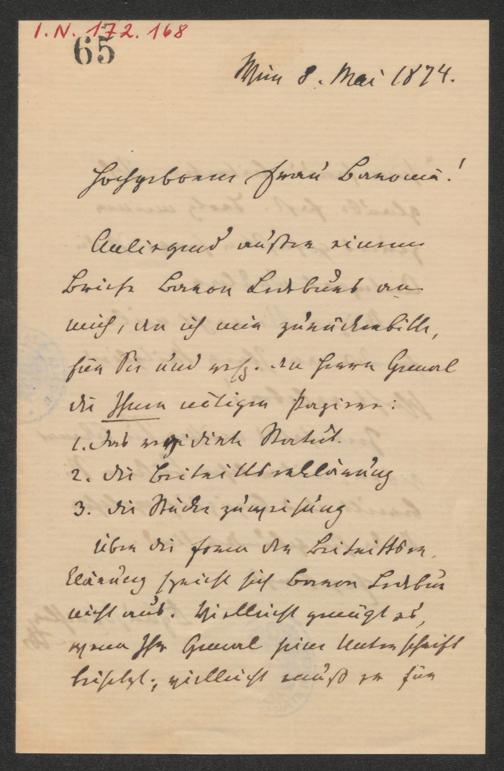 I. N. 172.168
65
Wien 8. Mai 1874.
Hochgeborene Frau Baronin!
Anliegend außer einem
Briefe Baron Ledeburs an
mich, den ich mir zurückerbitte,
für Sie und resp. den Herrn Gemal
die Ihnen nötigen Papiere:
1. das Statut.
2. die Beitrittserklärung
3. die Stückezuweisung
Über die Form der Beitrittser,
klärung spricht sich Baron Ledebur
nicht aus. Vielleicht genügt es,
wenn Ihr Gemal seine Unterschrift
beisetzt; vielleicht muß er für